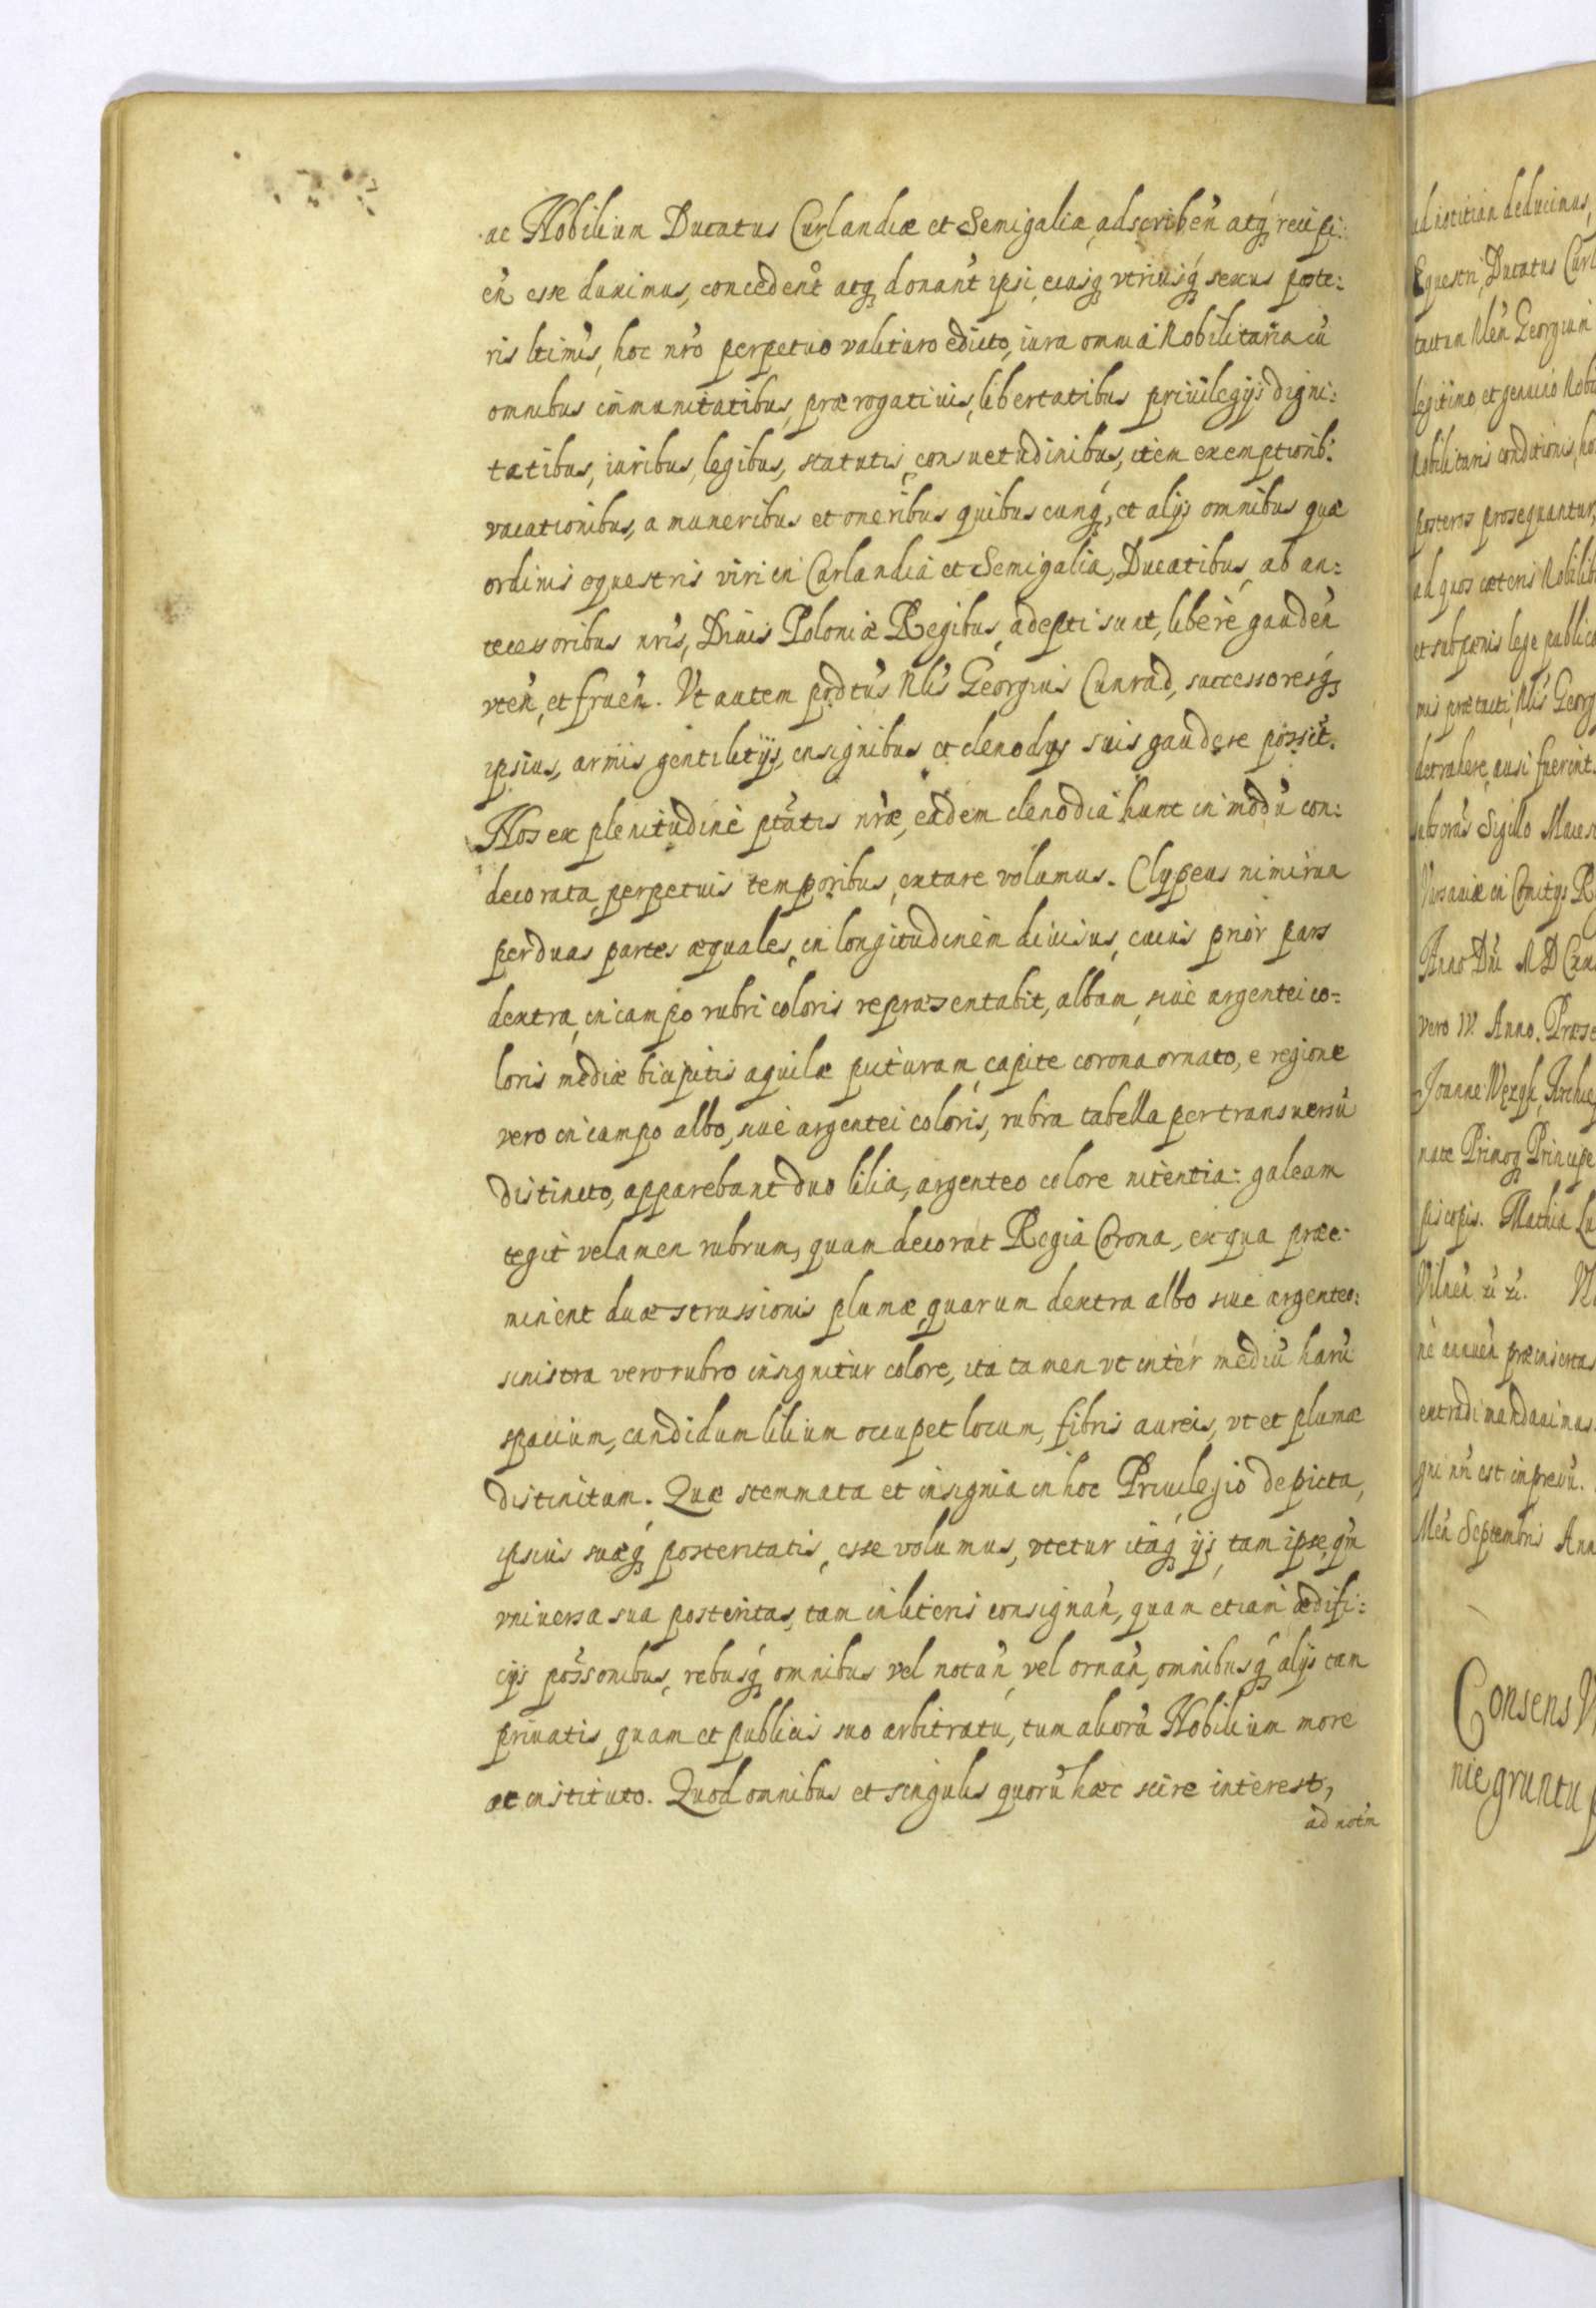 ac Nobilium Ducatus Curlandiæ et Semigaliæ, adscriben̄ atq́ʒ recipi:
en̄ esse duximus, conceden̄t atqʒ donan̄t ipsi, eiusqʒ vtriusq́ʒ sexus poste:
ris ltimis, hoc nr̄o perpetuo valituro edicto, iura omnia Nobilitaria cū
omnibus im̄unitatibus, prærogatiuis, libertatibus priuilegijs digni:
tatibus, iuribus, legibus, statutis, consuetudinibus, item exemptionib:
vacationibus, a muneribus et oneribus quibuscunq́ʒ, et alijs omnibus quæ
ordinis equestris viri in Curlandiæ et Semigaliæ, Ducatibus, ab an:
tecessoribus nr̄is, Diuis Poloniæ Regibus, adepti sunt, liberè gauden̄
vten̄, et fruen̄. Vt autem prȩdtūs Nlis̄ Georgius Cunrad, successoresq́ʒ
ipsius, armis gentilitijs, insignibus et clenodijs suis gaudere possit.
Nos ex plenitudine ptātis nr̄æ, eadem clenodia hunc in modū con:
decorata, perpetuis temporibus, extare volumus. Clypeus nimirum
per duas partes æquales, in longitudinem diuisus, cuius prior pars
dextra, in campo rubri coloris repræsentabit, albam, siue argentei co:
loris mediæ bicipitis aquilæ picturam, capite corona ornato, e regione
vero in campo albo, siue argentei coloris, rubra tabella per transuersū
distincto, apparebant duo lilia, argenteo colore nitentia: galeam
tegit velamen rubrum, quam decorat Regia Corona, ex qua præe:
minent duæ strussionis plumæ, quarum dextra albo siue argenteo:
sinistra vero rubro insignitur colore, ita tamen vt inter mediū harū
spacium, candidum lilium occupet locum, fibris aureis, vt et plumæ
distinctum. Quæ stemmata et insignia in hoc Priuilegio depicta,
ipsius suæq́ʒ posteritatis, esse volumus, vtetur itaq́ʒ ijs, tam ipse, qm̄
vniuersa sua posteritas, tam in literis consignan̄, quam etiam ædifi:
cijs poss̄onibus, rebusq́ʒ omnibus vel notan̄, vel ornan̄, omnibusq́ʒ alijs tam
priuatis, quam et publicis suo arbitratu, tum aliorū Nobilium more
ac instituto. Quod omnibus et singulis quorū hæc scire interest,
ad notm̄
ad notitiam deducimus,
Equestri, Ducatus Curl
tactum Nlen̄ Georgium
legitimo et genuino Nobi
Nobilitaris conditionis, ho
posteros prosequantur,
ad quos cæteris Nobilib
et sub pœnis lege publica
mis prætacti, Nlis̄ Georg
detrahere, ausi fuerint.
Sigillo Maies
Varsauiæ in Comitijs R
Anno Dni M D C
vero IV. Anno. Præse
Joanne Węzyk, Archiep
nate Primoqʒ Principe
piscopis. Mathia Lu
Vilnen̄
præinsertas
extradi mandauimus.
est impressū.
Men̄ Septembris Ann
Consens
nie gruntu p